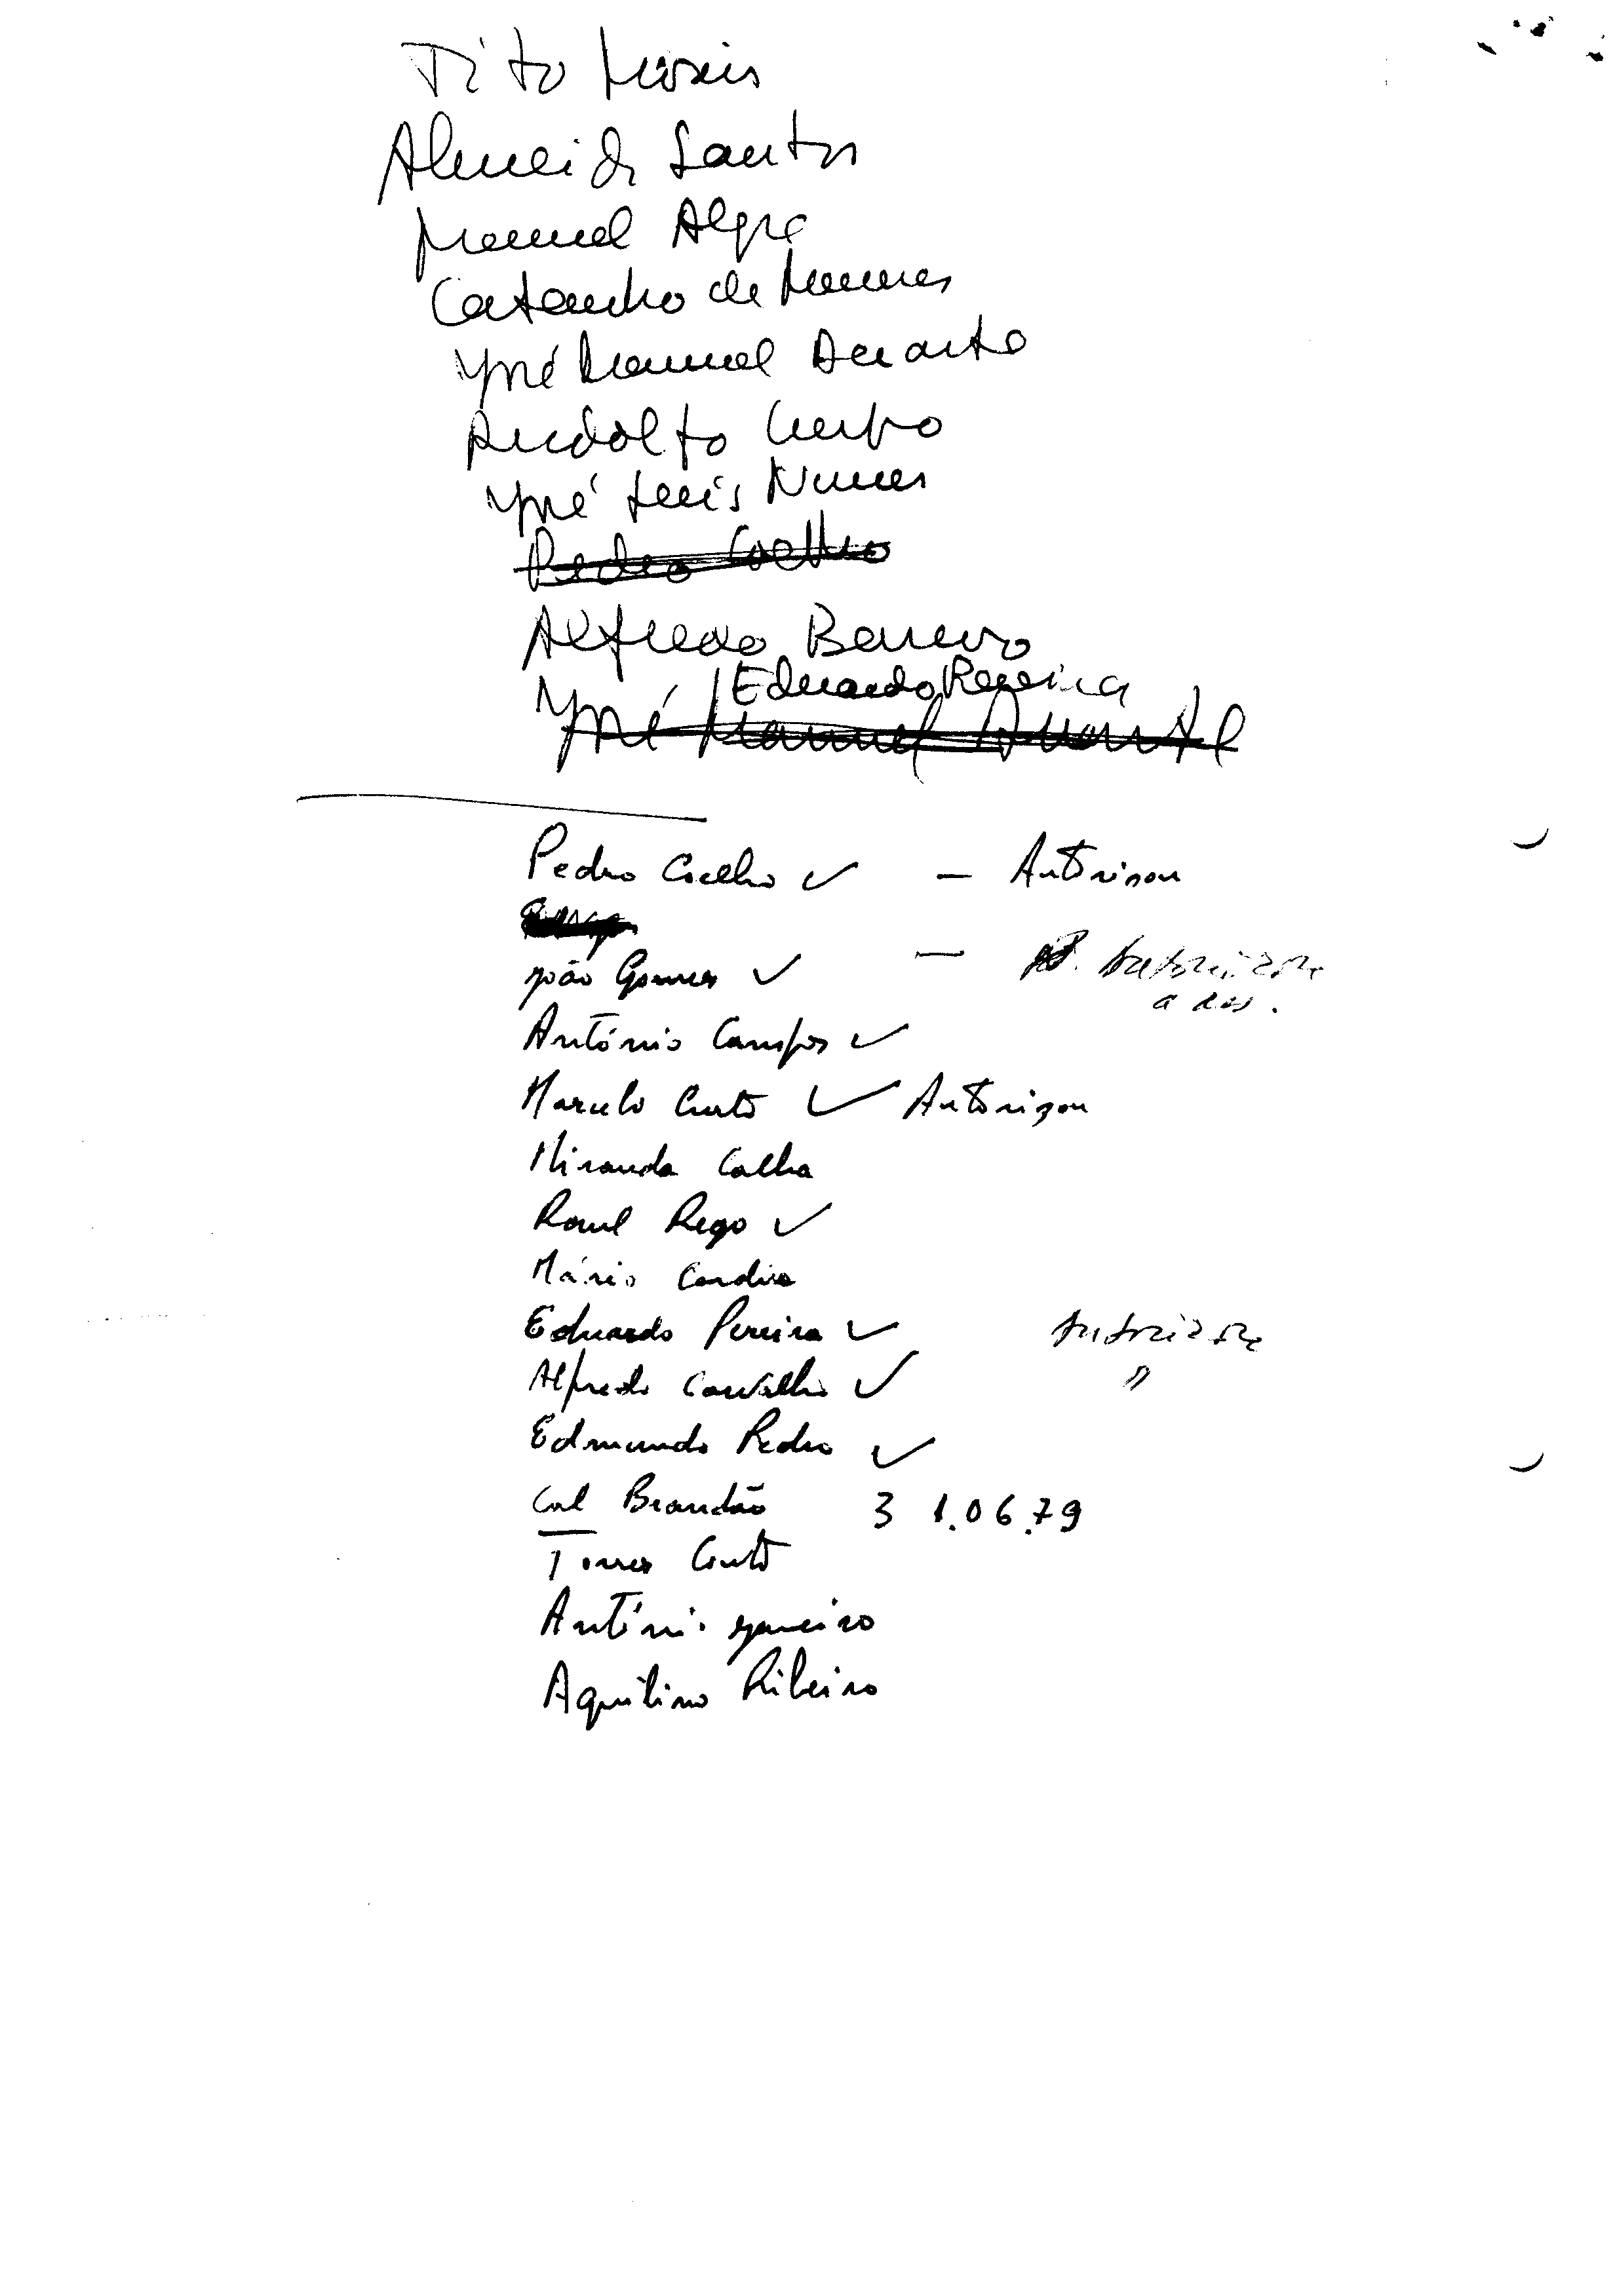 Tito Morais
Almeida Santos
Manuel Alegre
Catanho de Menezes
José Manuel Duarte
Rudolfo Crespo
José Luís Nunes
Pedro Coelho
Alfredo Barroso
Eduardo Pereira
José Manuel Duarte
Pedro Coelho ✓ — Autorisou
João Gomes ✓ —
António Campos ✓
Marcelo Curto ✓ Autorizou
Miranda Calha
Raul Rego ✓
Mário Cardia
Eduardo Pereira ✓
Alfredo Carvalho ✓ "
Edmundo Pedro ✓
Cal Brandão 3 1.06.79
Torres Couto
António Janeiro
Aquilino Ribeiro